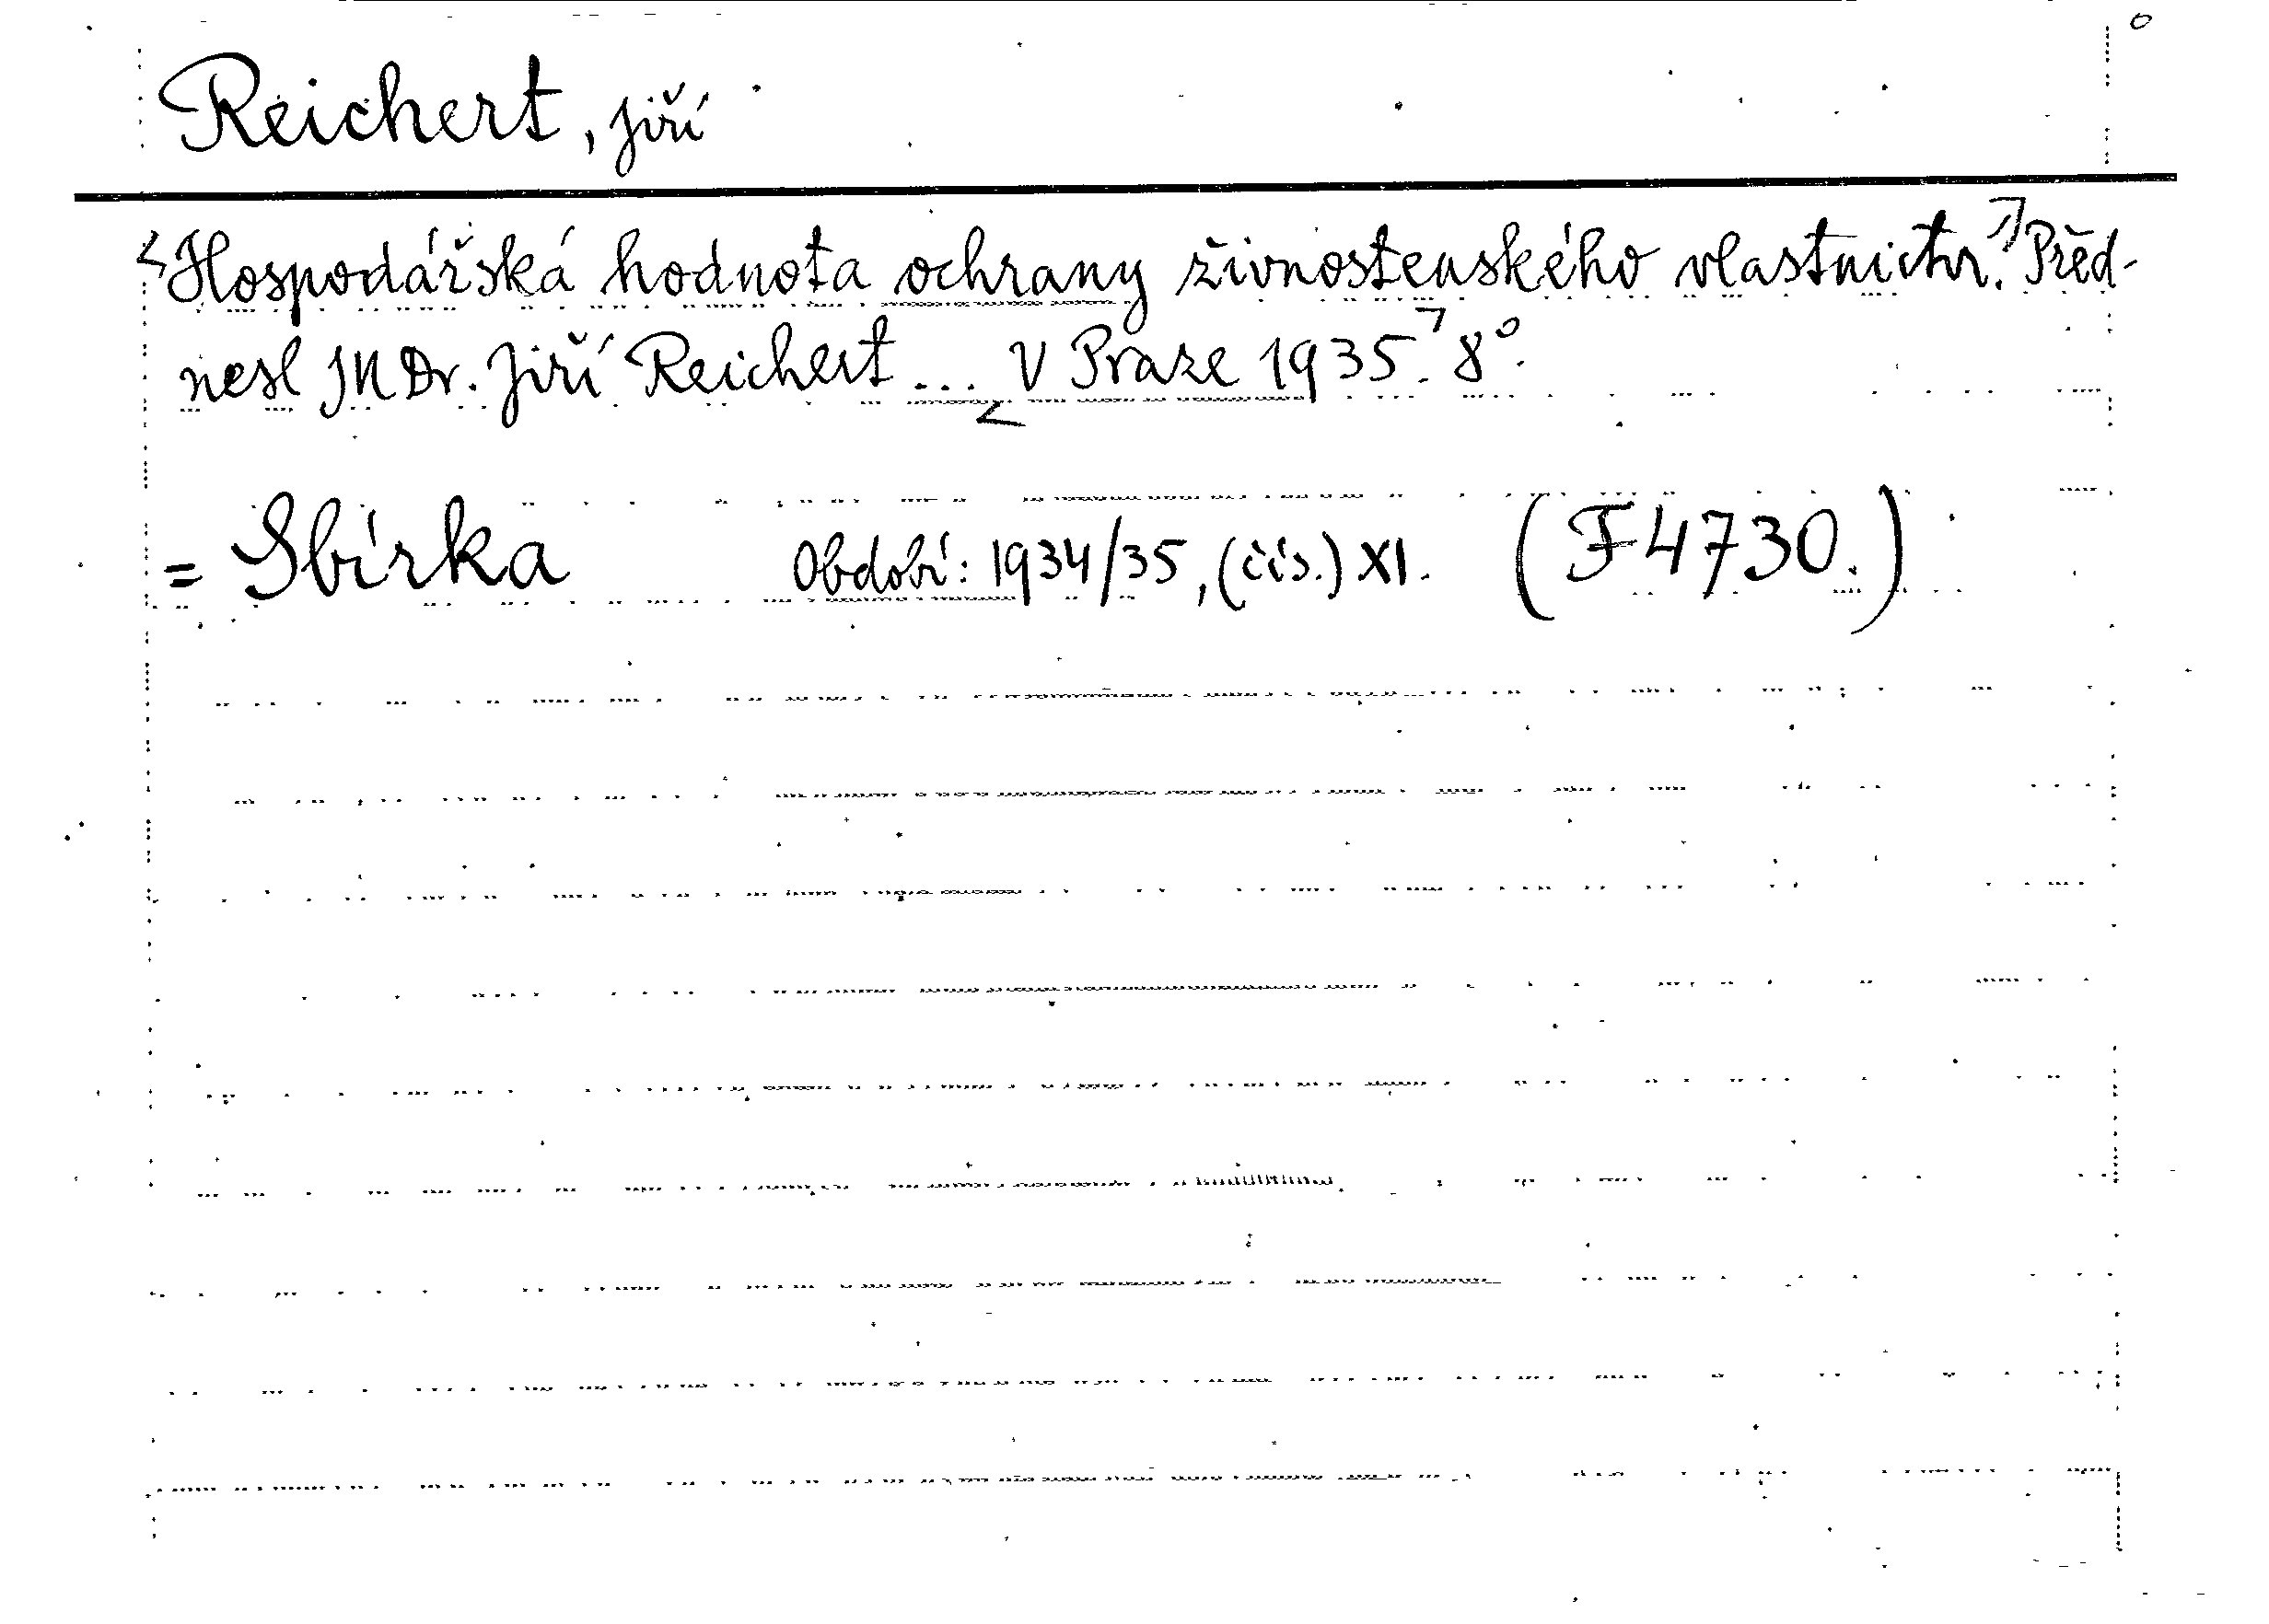 Reichert, Jiří
Hospodářská hodnota ochrany živnostenského vlastnictv. Před-
nesl JUDr. Jiří Reichert ... V Praze 1935. 8°.
= Sbírka Období: 1934/35, (čís.) XI. (F 4730.)